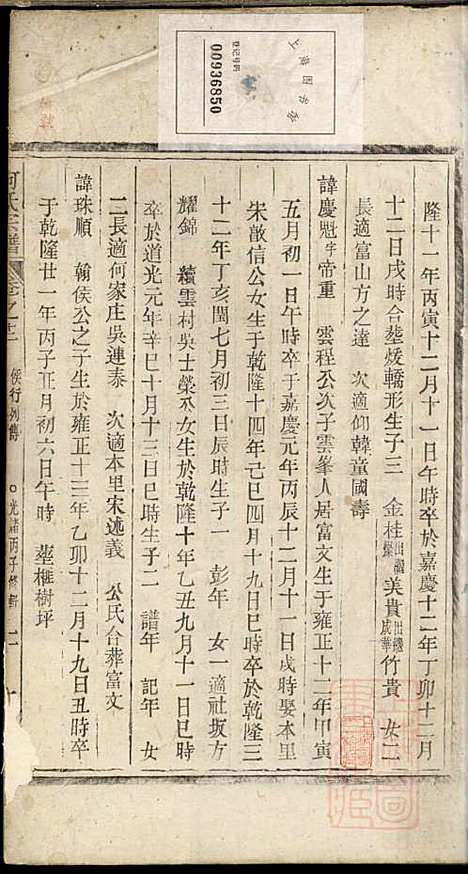 上海图书馆
登记号码
00936850
隆十一年丙寅十二月十一日午時卒於嘉慶十二年丁卯十二月
十二日戌時合塟煖轎形生子三 金桂出繼 美貴出繼成華 竹貴 女二
長適富山方之達 次適仰韓童國壽
諱慶魁字帝重 雲程公次子雲峯人居富文生于雍正十二年甲寅
五月初一日午時卒于嘉慶元年丙辰十二月十一日戌時娶本里
朱啟信公女生于乾隆十四年己巳四月十九日巳時卒於乾隆三
十二年丁亥閏七月初三日辰時生子一 彭年 女一適社坂方
耀錦 續雲村吳士榮公女生於乾隆十年乙丑九月十一日巳時
卒於道光元年辛巳十月十三日巳時生子二 譜年 記年 女
二長適何家庄吳連泰 次適本里宋述義 公氏合葬富文
諱珠順 翰侯公之子生於雍正十三年乙卯十二月十九日丑時卒
于乾隆廿一年丙子正月初六日午時 塟榧樹坪
何氏宗譜 卷之十二 侯行列傳 光緒丙子修輯